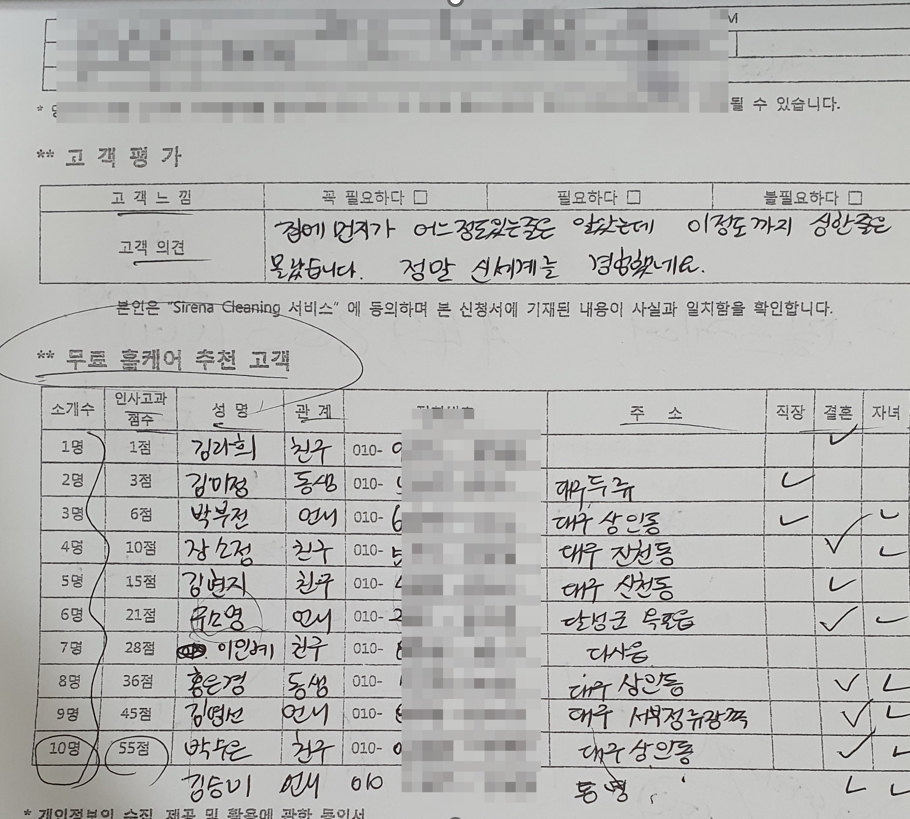 M
될 수 있습니다.
** 고 객 평 가
고 객 느 낌 꼭 필요하다 □ 필요하다 □ 불필요하다 □
고객 의견
집에 먼지가 어느정도있는줄은 알았는데 이정도까지 심한줄은
몰랐습니다. 정말 신세계를 경험했네요.
본인은 “Sirena Cleaning 서비스” 에 동의하며 본 신청서에 기재된 내용이 사실과 일치함을 확인합니다.
** 무료 홈케어 추천 고객
소개수 인사고과 점수 성 명 관 계 주 소 직장 결혼 자녀
1명 1점 김라희 친구 010-
2명 3점 김미정 동생 010- 대구두류
3명 6점 박부전 언니 010- 6 대구 상인동
4명 10점 장소정 친구 010- 대구 진천동
5명 15점 김현지 친구 010- 대구 신천동
6명 21점 언니 010- 2 달성군
7명 28점 친구 010- 다사읍
8명 36점 홍은경 동생 010- 대구 상인동
9명 45점 김영선 언니 010- 대구
10명 55점 박수은 친구 010- 대구 상인동
김승미 언니 010
* 개인정보의 수집, 제공 및 활용에 관한 동의서